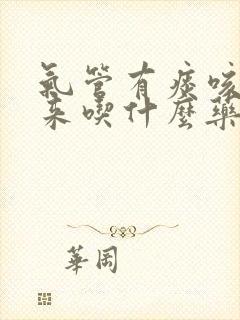 氣管有痰咳
來喫什麼藥
華岡